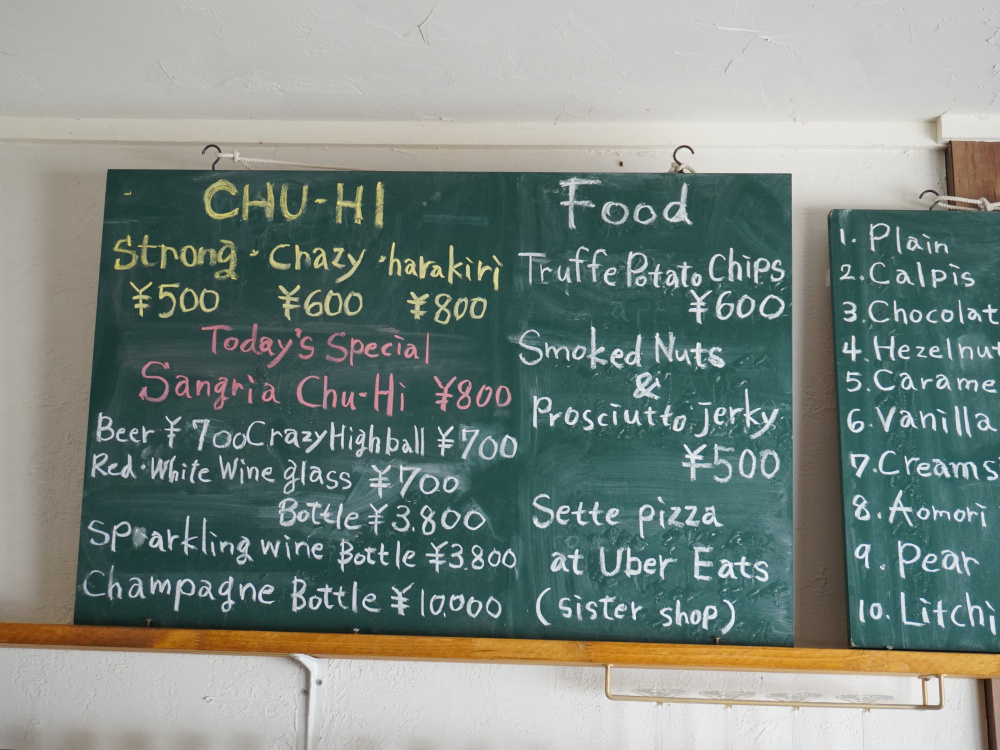 CHU-HI
Strong・Crazy・harakiri
¥500 ¥600 ¥800
Today's Special
Sangria Chu-Hi ¥800
Beer ¥700 Crazy Highball ¥700
Red・White Wine glass ¥700
Bottle ¥3.800
Sparkling wine Bottle ¥3.800
Champagne Bottle ¥10.000
Food
Truffe Potato Chips
¥600
Smoked Nuts
&
Prosciutto jerky
¥500
Sette pizza
at Uber Eats
(sister shop)
1. Plain
2. Calpis
3. Chocolat
4. Hezelnut
5. Carame
6. Vanilla
7. Creams
8. Aomori
9. Pear
10. Litchi